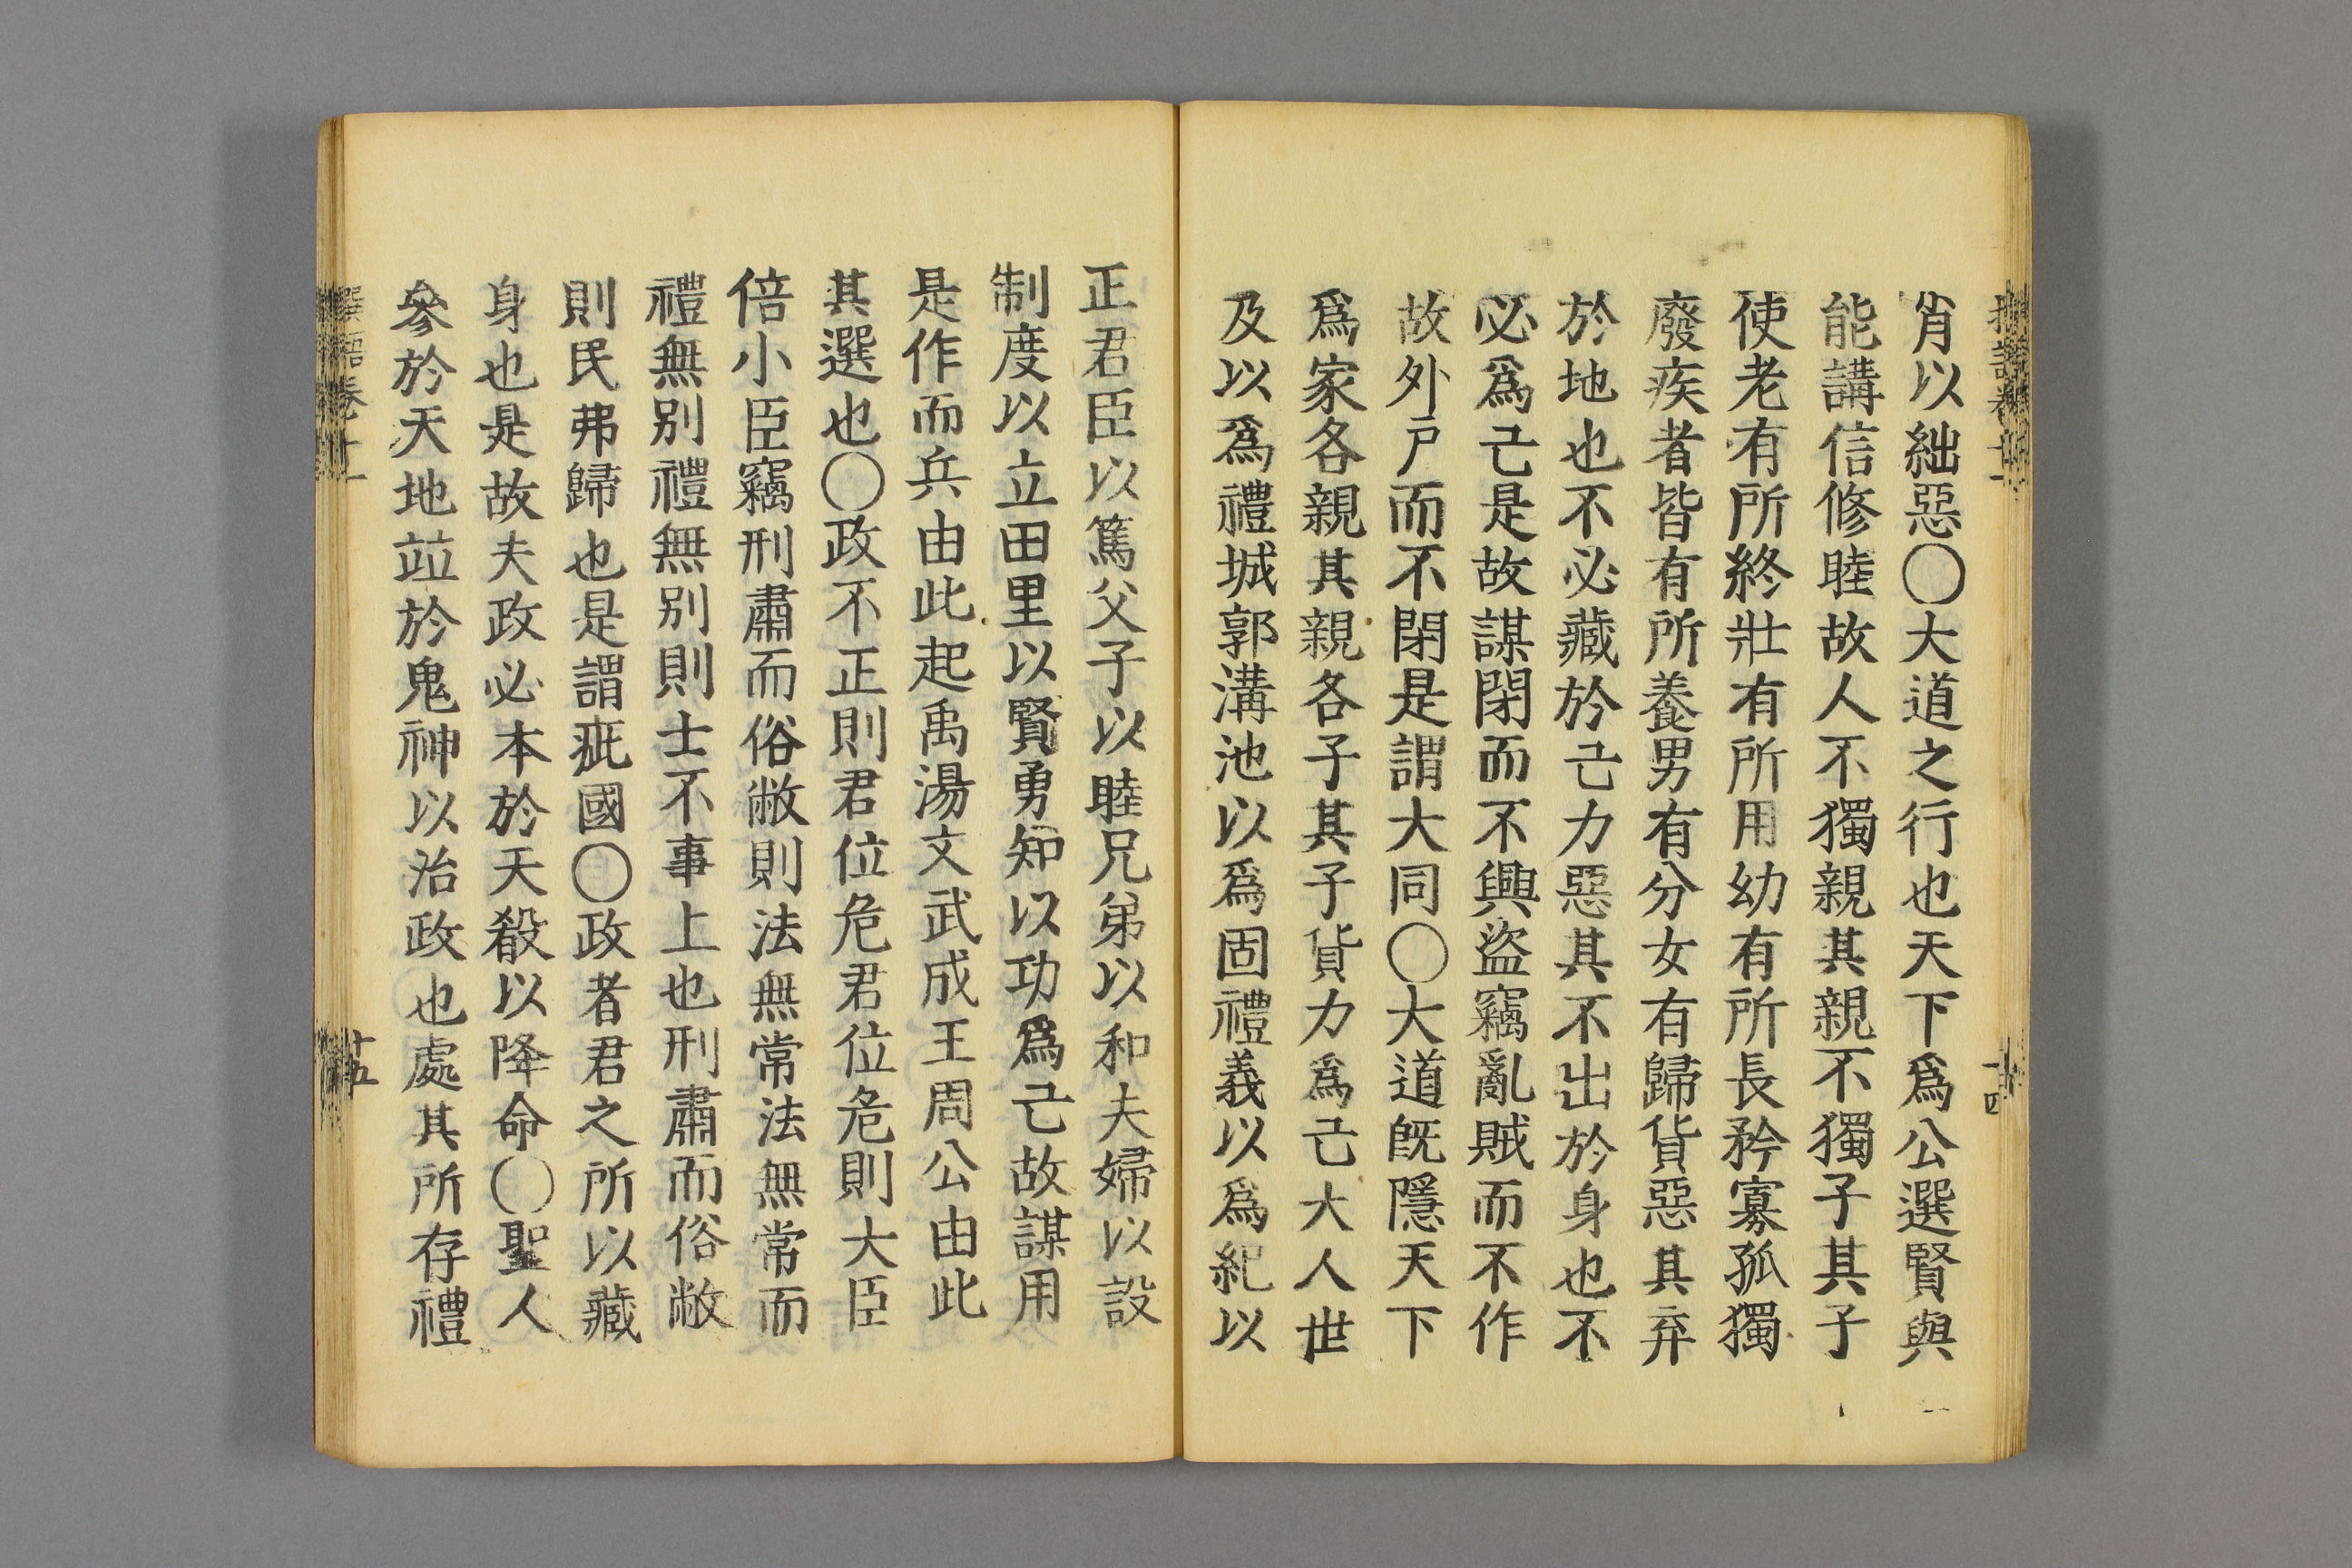 肖以絀惡○大道之行也天下爲公選賢與
能講信修睦故人不獨親其親不獨子其子
使老有所終壯有所用幼有所長矜寡孤獨
廢疾者皆有所養男有分女有歸貨惡其弃
於地也不必藏於己力惡其不出於身也不
必爲己是故謀閉而不興盜竊亂賊而不作
故外戶而不閉是謂大同○大道既隱天下
爲家各親其親各子其子貨力爲己大人世
及以爲禮城郭溝池以爲固禮義以爲紀以
十四
正君臣以篤父子以睦兄弟以和夫婦以設
制度以立田里以賢勇知以功爲己故謀用
是作而兵由此起禹湯文武成王周公由此
其選也○政不正則君位危君位危則大臣
倍小臣竊刑肅而俗敝則法無常法無常而
禮無別禮無別則士不事上也刑肅而俗敝
則民弗歸也是謂疵國○政者君之所以藏
身也是故夫政必本於天殽以降命○聖人
參於天地竝於鬼神以治政也處其所存禮
卷十一
十五